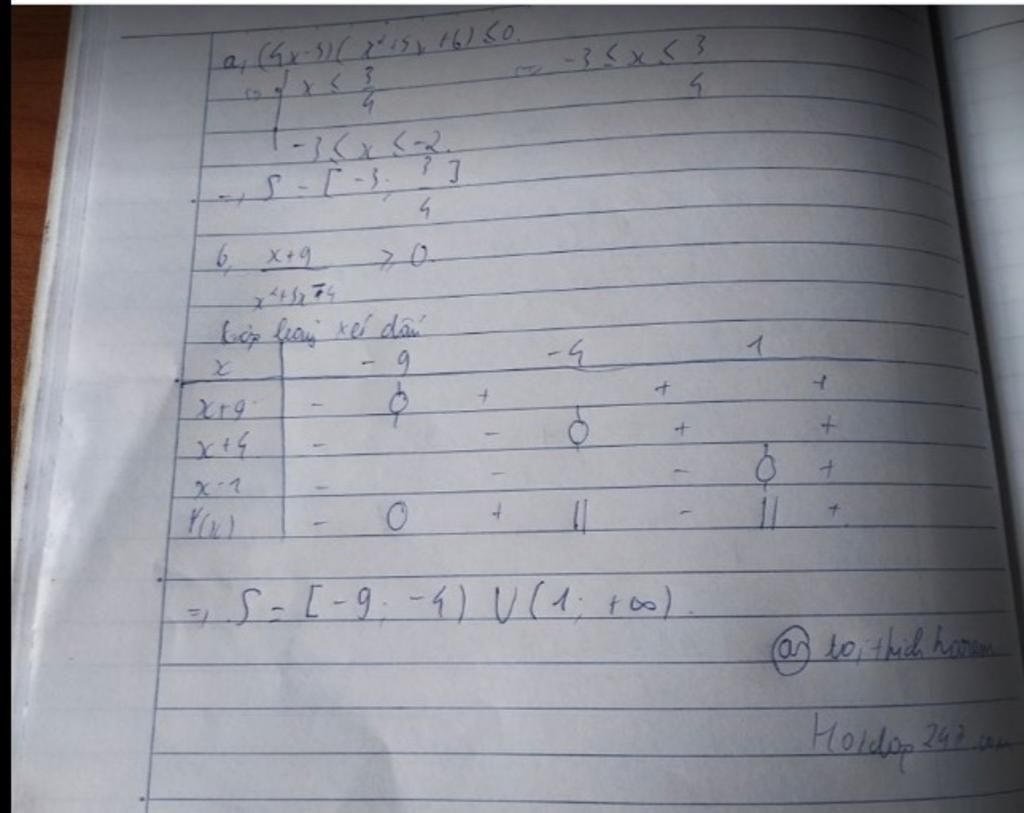 a, (4x-3)(x²+5x+6) ≤ 0.
⇔ { x ≤ 3/4 ⇒ -3 ≤ x ≤ 3/4
-3 ≤ x ≤ -2.
⇒ S = [-3; 3/4]
b, (x+9)/(x²+3x-4) ≥ 0.
Lập bảng xét dấu
x -9 -4 1
x+9 - 0 + + +
x+4 - - 0 + +
x-1 - - - 0 +
f(x) - 0 + || - || +
⇒ S = [-9; -4) ∪ (1; +∞).
@ toi thich harem
Hoidap247.com